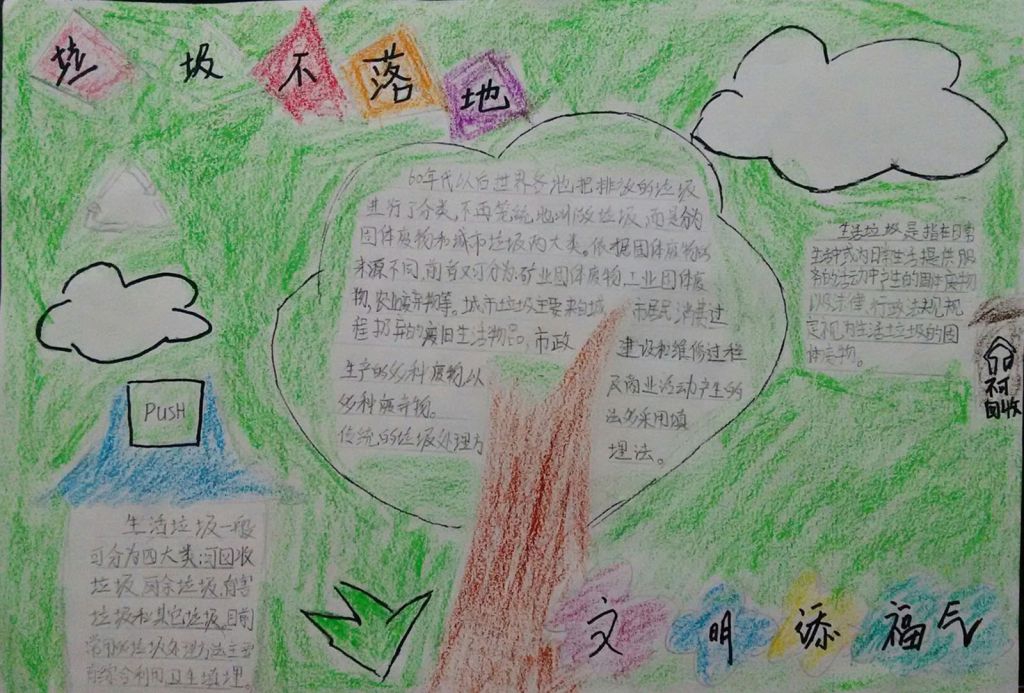 垃圾不落地
60年代以后世界各地把排放的垃圾
进行了分类,不再笼统地叫做垃圾,而是分为
固体废物和城市垃圾两大类。依据固体废物的
来源不同,前者又可分为矿业固体废物,工业固体废
物,农业废弃物等。城市垃圾主要来自城 市居民消费过
程扔弃的废旧生活物品,市政 建设和维修过程
生产的多种废物以 及商业活动产生的
多种废弃物。 法多采用填
传统的垃圾处理方 埋法。
生活垃圾是指在日常
生活中或为日常生活提供服
务的活动中产生的固体废物
以及法律,行政法规规
定视为生活垃圾的固
体废物。
不可
回收
PUSH
生活垃圾一般
可分为四大类:可回收
垃圾,厨余垃圾,有害
垃圾和其它垃圾。目前
常用的垃圾处理方法主要
有综合利用卫生填埋。
文明添福气